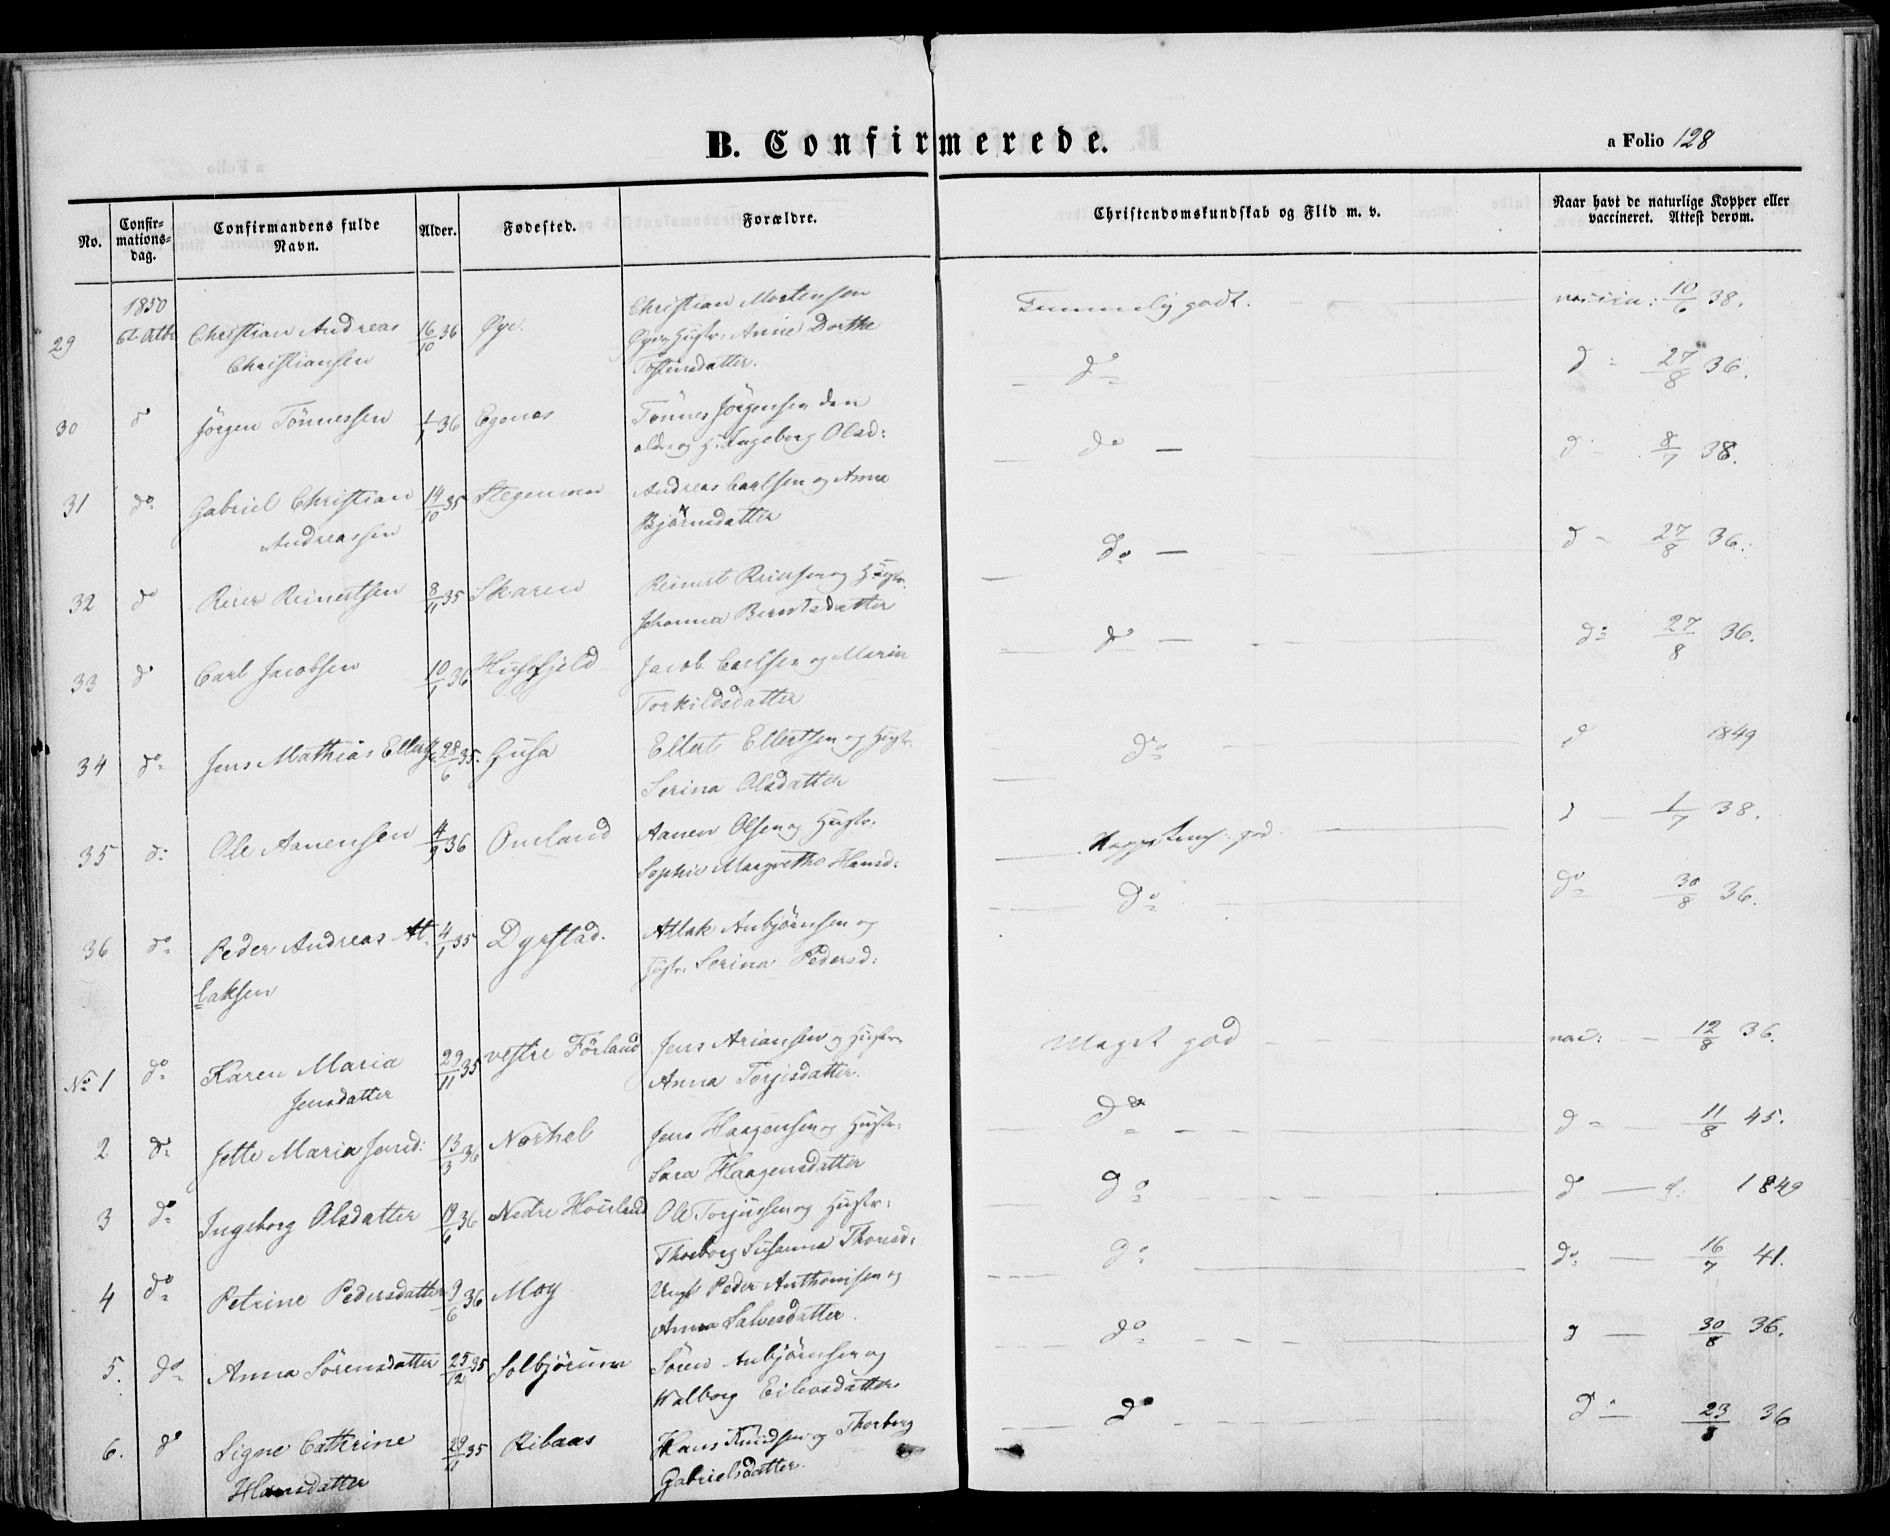 B. Confirmerede.
a Folio 128
No.
Confir-
mations-
dag.
Confirmandens fulde
Navn.
Alder.
Fødested.
Forældre.
Christendomskundskab og Flid m. v.
Naar havt de naturlige Kopper eller
vaccineret. Attest derom.
1850
29 6t Octbr Christian Andreas 16/10 36 Øye. Christian Mortensen
Christiansen Øye og Hustr: Anne Dorthe
datter.
Temmelig godt. vaccin: 10/6 38.
30 do Jörgen Tönnessen 1/1 36 Egenes Tönnes Jörgensen den
ældre og H. Ingeborg Olsd:
do do 27/8 36.
31 do Gabriel Christian 14/10 35 Stegemoen Andreas Carlsen og Anna
Andreassen Bjørnsdatter
do — do 8/7 38.
32 do Reier Reinertsen 8/11 35 Skaren Reinert Reiersen og Hustr.
Johanna Berntsdatter
do — do 27/8 36.
33 do Carl Jacobsen 10/1 36 Husefjeld Jacob Carlsen og Maria
Torkildsdatter
do — do 27/8 36.
34 do Jens Mathias Ellerts. 28/6 35. Husa Ellert Ellertsen og Hustr.
Serina Olsdatter
do do 1849
35 do Ole Aanensen 4/9 36 Omland Aanen Olsen og Hustr:
Sophie Margrethe Hansd:
god do 1/7 38.
36 do Peder Andreas At- 4/1 35 Dyrstad. Atlak Anbjörnsen og
laksen Hustr: Serina Pedersd:
do do 30/8 36.
No 1 do Karen Maria 29/11 35 vestre Förland Jens Ariansen og Hustr.
Jensdatter Anna Torjisdatter.
Meget god vac: 12/8 36.
2 do Jette Maria Jensd: 13/3 36 Norhel Jens Haagensen og Hustr.
Sara Haagensdatter
do do 11/8 45.
3 do Ingeborg Olsdatter 19/6 36 Nedre Höieland Ole Torjussen og Hustr:
Thorborg Susanna Thorsd:
do do 1849
4 do Petrine Pedersdatter 9/6 36 Moy Ungk Peder Anthonisen og
Anna Salvesdatter.
do do 16/7 41.
5. do Anna Sörensdatter 25/12 35 Solbjörnun Sören Anbjörnsen og
Walborg Eilevsdatter
do do 30/8 36.
6. do Signe Cathrine 29/11 35 Ribaas Hans Knudsen og Thorborg
Hansdatter Gabrielsdatter.
do do 23/8 36